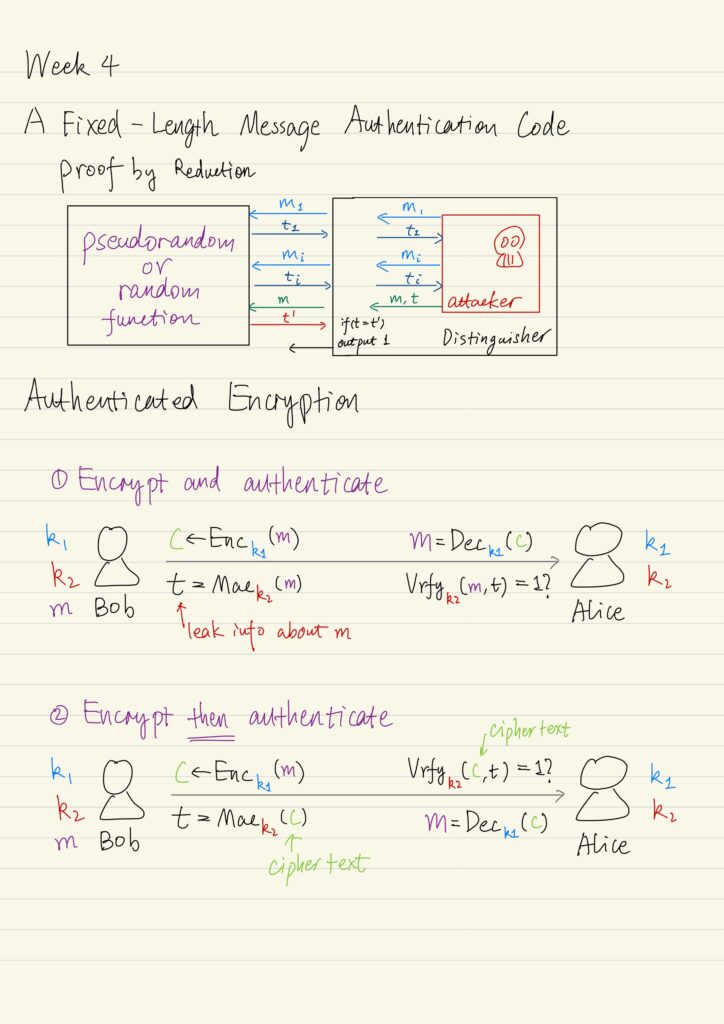 Week 4
A Fixed-Length Message Authentication Code
proof by Reduction
pseudorandom
or
random
function
m1
t1
mi
ti
m
t'
m1
t1
mi
ti
m, t
if(t=t')
output 1
attacker
Distinguisher
Authenticated Encryption
① Encrypt and authenticate
k1
k2
m
Bob
C←Enck1(m)
t = Mack2(m)
leak info about m
m=Deck1(C)
Vrfyk2(m,t)=1?
Alice
k1
k2
② Encrypt then authenticate
k1
k2
m
Bob
C←Enck1(m)
t = Mack2(C)
cipher text
cipher text
Vrfyk2(C,t)=1?
m=Deck1(C)
Alice
k1
k2